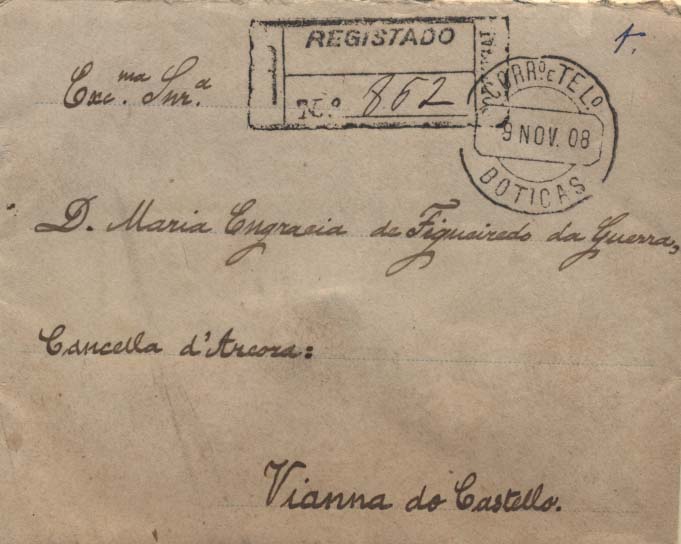 REGISTADO
N.º 862
CORRO E TELO
9 NOV. 08
BOTICAS
Exc.ma Snr.a
D. Maria Engracia de Figueiredo da Guerra,
Cancella d'Areora:
Vianna do Castello.